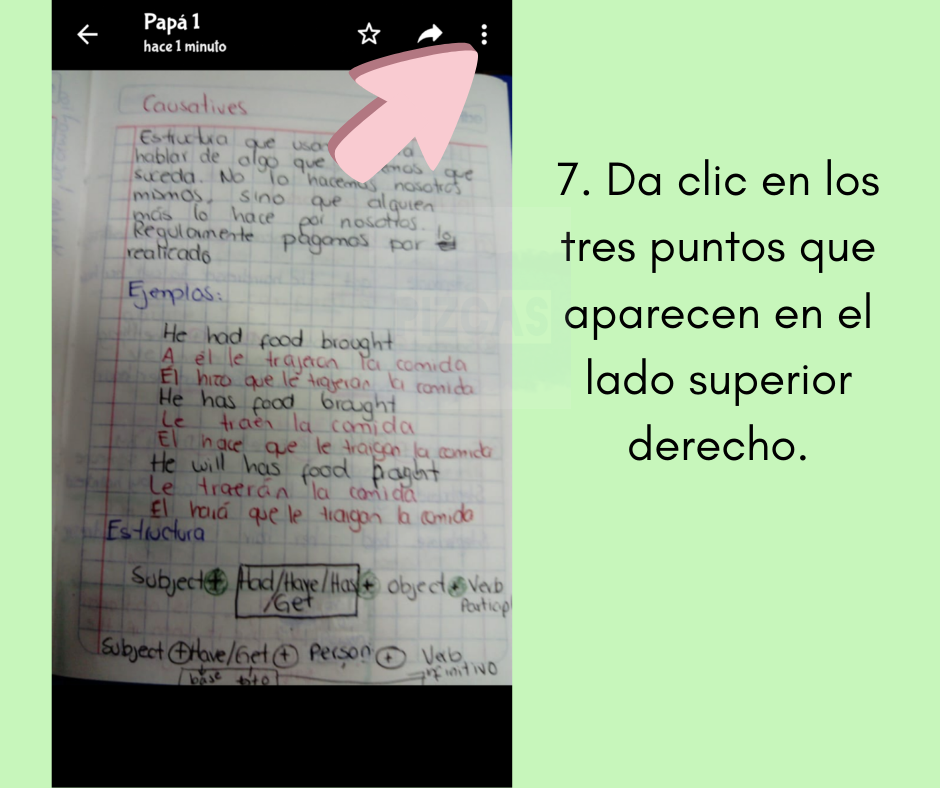 Papá 1
hace 1 minuto
Causatives
Estructura que usa
hablar de algo que que
suceda. No lo hacemos nosotros
mismos, sino que alguien
más lo hace por nosotros.
Regularmente pagamos por lo
realicado
Ejemplos:
He had food brought
A él le trajeron la comida
El hizo que le trajeran la comida
He has food brought
Le traen la comida
El hace que le traigan la comida
He will has food
Le traerán la comida
El hará que le traigan la comida
Estructura
Subject + Had/Have/Has + object + Verb
/Get Particip
Subject + Have/Get + Person + Verb
base infinitivo
7. Da clic en los
tres puntos que
aparecen en el
lado superior
derecho.